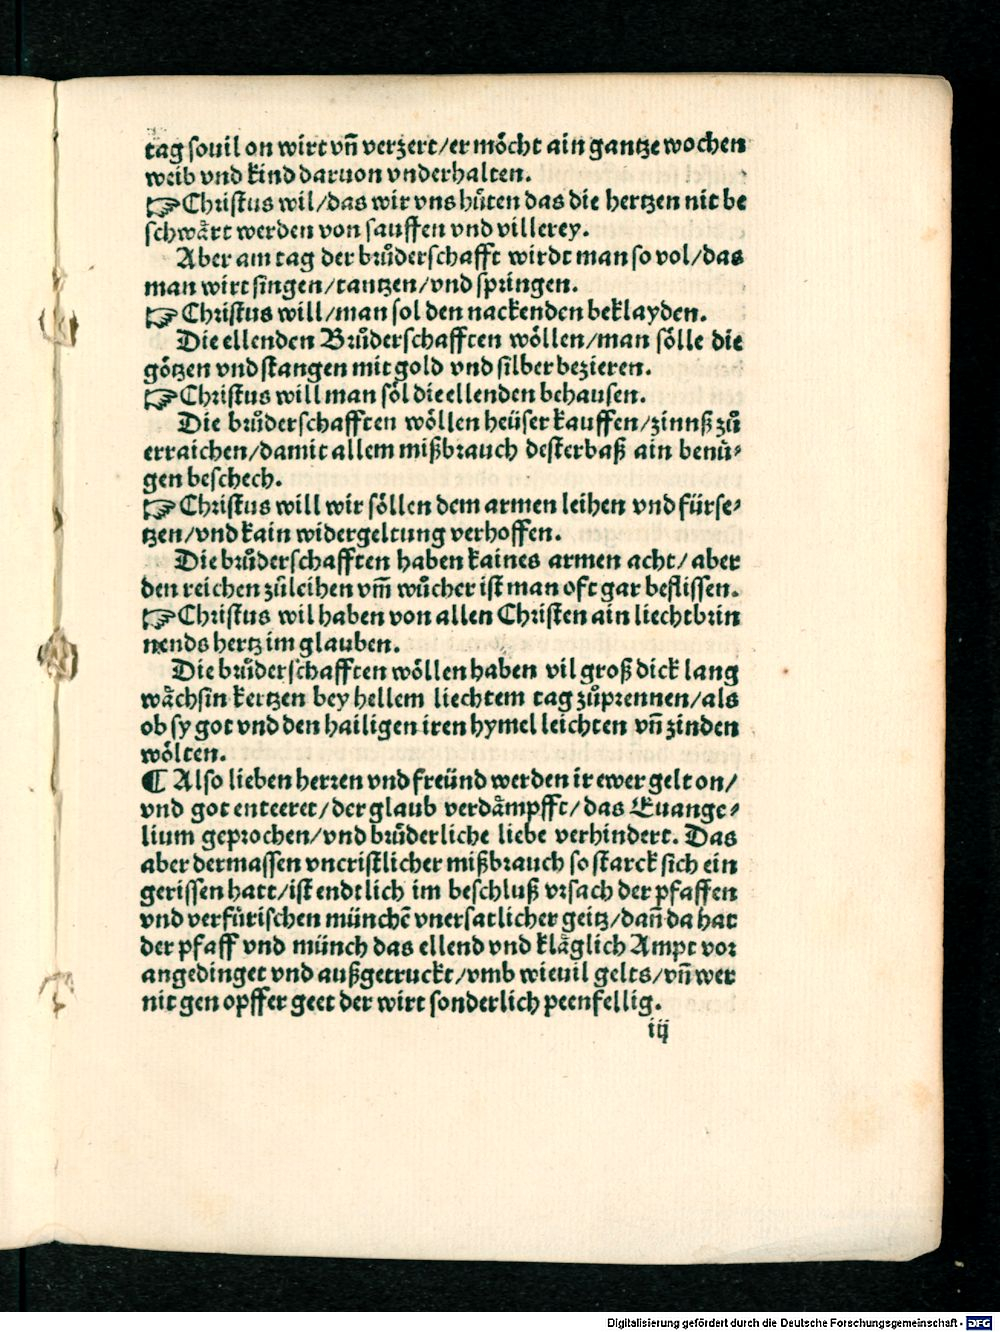 tag souil on wirt vñ verzert/er mo̊cht ain gantze wochen
weib vnd kind daruon vnderhalten.
☞ Christus wil/das wir vns hu̍ten das die hertzen nit be
schwa̍rt werden von sauffen vnd villerey.
Aber am tag der bru̍derschafft wirdt man so vol/das
man wirt singen/tantzen/vnd springen.
☞ Christus will/man sol den nackenden beklayden.
Die ellenden Bru̍derschafften wöllen/man sölle die
götzen vnd stangen mit gold vnd silber bezieren.
☞ Christus will man söl die ellenden behausen.
Die bru̍derschafften wöllen heüser kauffen/zinnß zů
erraichen/damit allem mißbrauch desterbaß ain benü⸗
gen beschech.
☞ Christus will wir söllen dem armen leihen vnd fürse⸗
tzen/vnd kain widergeltung verhoffen.
Die bru̍derschafften haben kaines armen acht/aber
den reichen zůleihen vm̃ wůcher ist man oft gar beflissen.
☞ Christus wil haben von allen Christen ain liechtbrin
nends hertz im glauben.
Die bru̍derschafften wöllen haben vil groß dick lang
wächsin kertzen bey hellem liechtem tag zůprennen/als
ob sy got vnd den hailigen iren hymel leichten vñ zinden
wölten.
¶ Also lieben herren vnd freünd werden ir ewer gelt on/
vnd got enteeret/der glaub verdämpfft/das Euange⸗
lium geprochen/vnd bru̍derliche liebe verhindert. Das
aber dermassen vncristlicher mißbrauch so starck sich ein
gerissen hatt/ist endtlich im beschluß vrsach der pfaffen
vnd verfürischen münchẽ vnersatlicher geitz/dañ da hat
der pfaff vnd münch das ellend vnd kläglich Ampt vor
angedinget vnd außgetruckt/vmb wieuil gelts/vñ wer
nit gen opffer geet der wirt sonderlich peenfellig.
iij
Digitalisierung gefördert durch die Deutsche Forschungsgemeinschaft - DFG